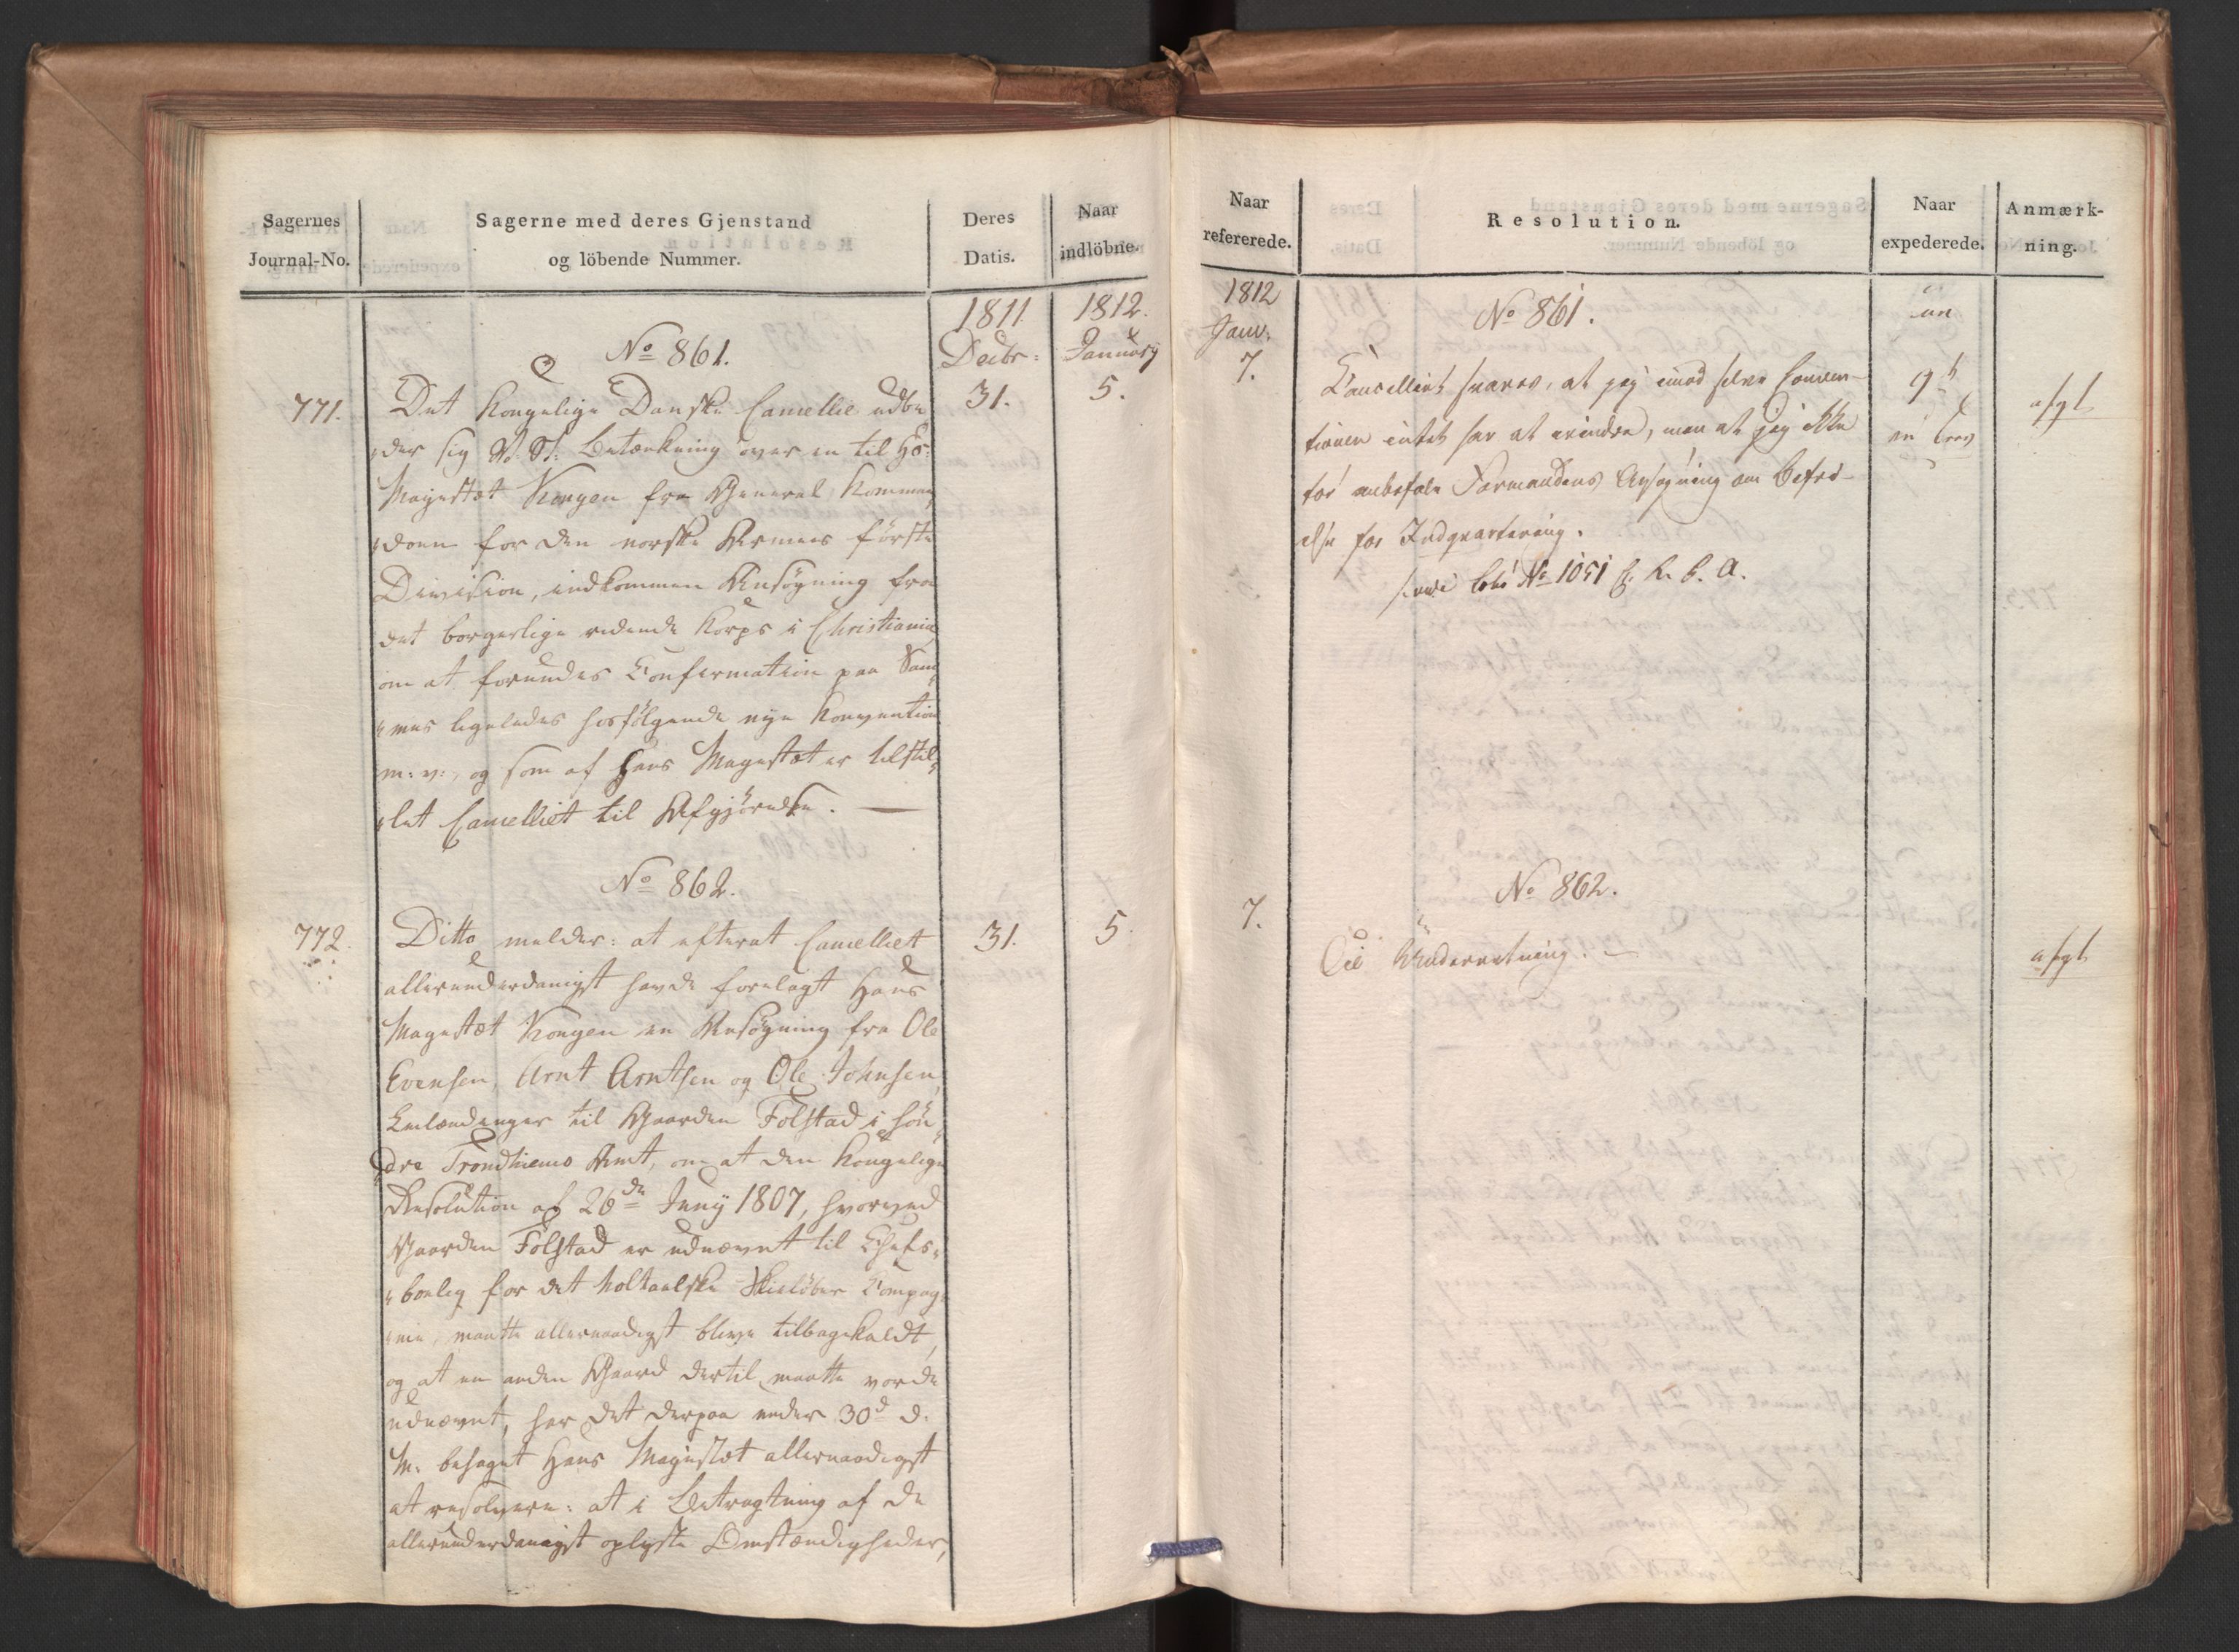 Sagernes
Journal-No.
Sagerne med deres Gjenstand
og löbende Nummer.
Deres
Datis.
Naar
indlöbne.
1811.
Decbr:
1812.
January
No 861.
771.
31.
5.
Det Kongelige Danske Cancellie udbe
der sig Betænkning over en til Hs:
Mayestæt Kongen fra General Komman,
doen for den norske Armees förste
Division, indkommen Ansögning fra
det borgerlige ridende Korps i Christiania,
om at forundes Confirmation paa Sam,
mes ligeledes hosfölgende nye Konvention
m: v:, og som af Hans Mayestæt er tilstil,
let Cancelliet til Afgjörelse.
No 862.
772.
31.
5.
Ditto melder: at efterat Cancelliet
allerunderdanigst havde forelagt Hans
Mayestæt Kongen en Ansögning fra Ole
Evensen, Arnt Arntsen og Ole Johnsen,
Leilændinger til Gaarden Folstad i Sön,
dre Trondhiems Amt, om at den Kongelige
Resolution af 26de Juny 1807, hvorved
Gaarden Folstad er udnævnt til Chefs,
boelig for det Holtaalske Skielöber Compag,
nie, maatte allernaadigst blive tilbagekaldt,
og at en anden Gaard dertil maatte vorde
udnævnt, har det derpaa under 30d d.
M. behaget Hans Mayestæt allernaadigst
at resolvere: at i Betragtning af de
allerunderdanigst oplyste Omstændigheder,
Naar
refererede.
Resolution.
Naar
expederede.
Anmærk-
ning.
1812
Janv.
7.
No 861.
9
Cancelliet svares, at jeg imod selve Conven-
tionen intet har at erindre, men at jeg ikke
tör anbefale Formandens Ansögning om Befri-
else for Indqvartering.
No 1051
afgt
7.
No 862.
Til Underretning.
afgt